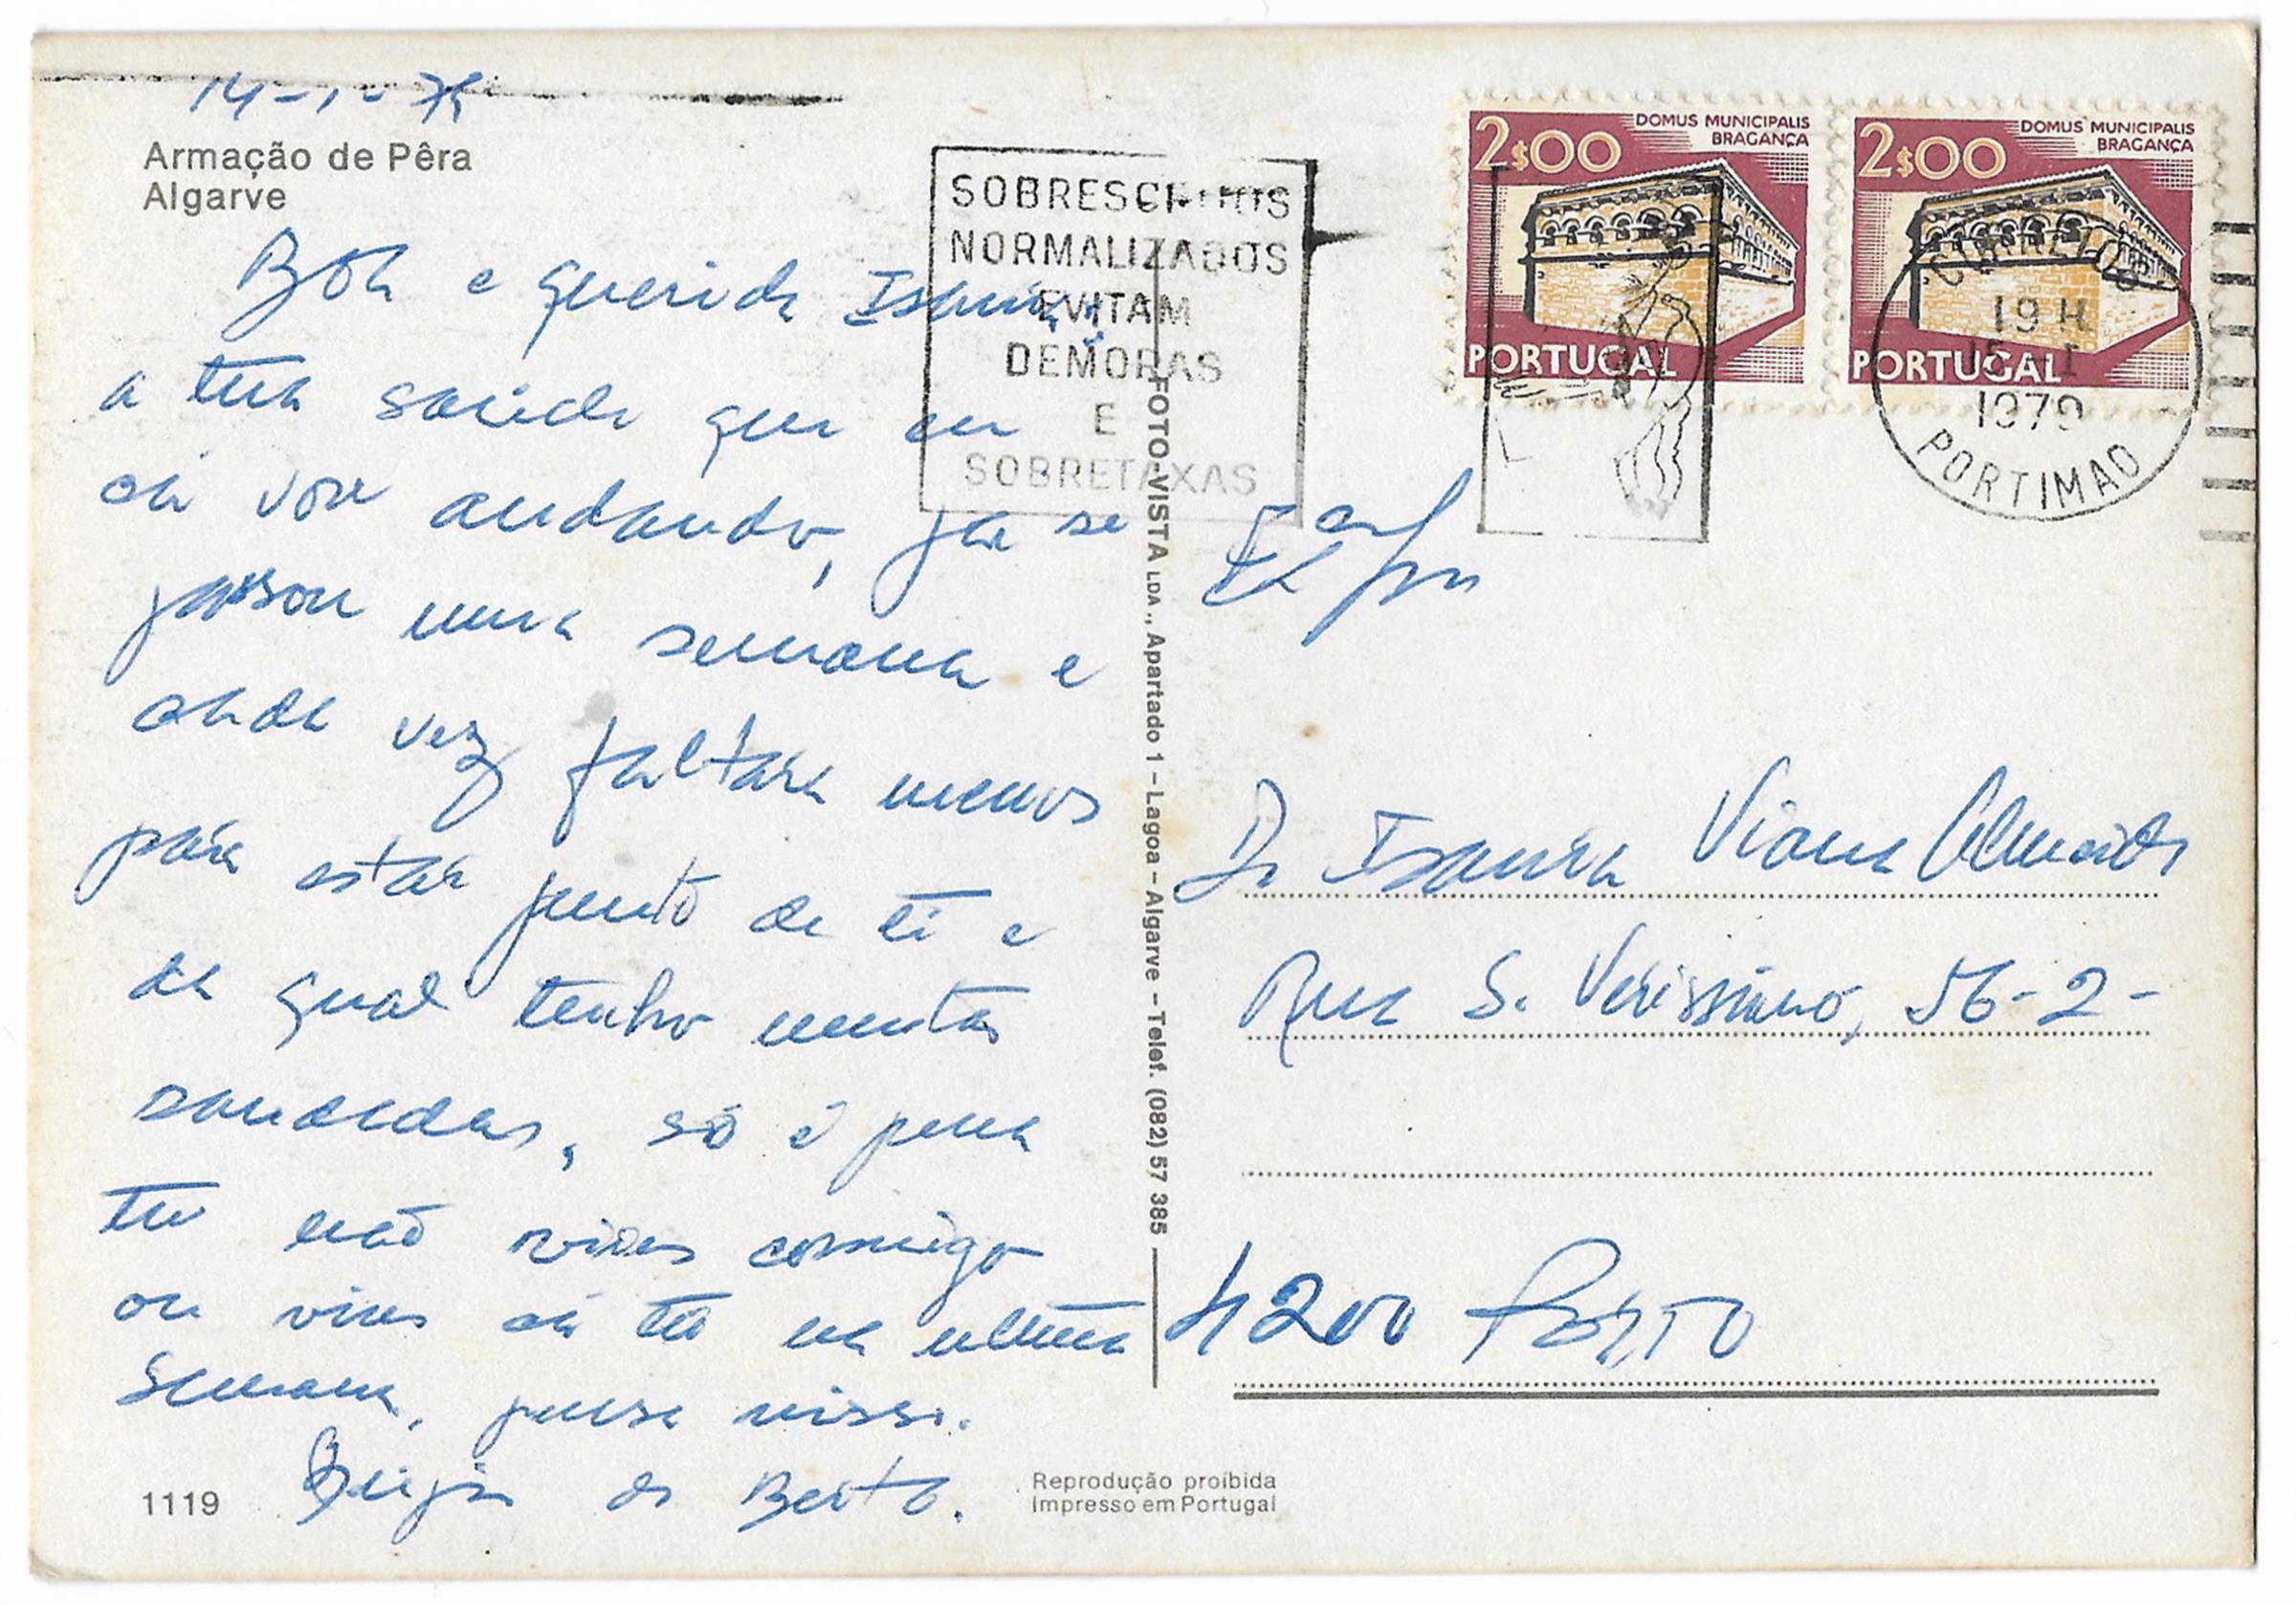 14-1-79
Armação de Pêra
Algarve
Boa e querida Isaura
a tua saúde que eu
cá vou andando, já se
passou uma semana e
cada vez faltará menos
para estar junto de ti e
da qual tenho muitas
saudades, só é pena
tu não vires comigo
ou vires cá tu na ultima
semana, pensa nisso.
Beijos do Berto.
1119
SOBRESCRITOS
NORMALIZADOS
EVITAM
DEMORAS
E
SOBRETAXAS
2$00 DOMUS MUNICIPALIS
BRAGANÇA
PORTUGAL
2$00 DOMUS MUNICIPALIS
BRAGANÇA
PORTUGAL
CORREIOS
19 H
15 I
1979
PORTIMAO
FOTO-VISTA LDA., Apartado 1 - Lagoa - Algarve - Telef. (082) 57 385
D. Isaura Viana Almeida
Rua S. Verissimo, 56-2-
4200 Porto
Reprodução proíbida
Impresso em Portugal